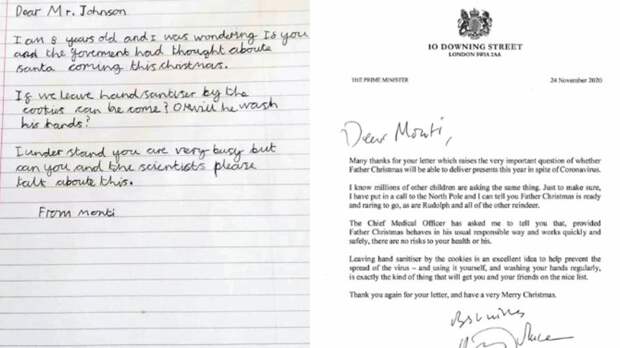 Dear Mr. Johnson
I am 8 years old and I was wondering Is you
and the goverment had thought aboute
santa coming this christmas.
If we leave hand sanitiser by the
cookies can be come? Or will he wash
his hands?
I under stand you are very busy but
can you and the scientists please
talk about this.
From monti
10 DOWNING STREET
LONDON SW1A 2AA
THE PRIME MINISTER
24 November 2020
Dear Monti,
Many thanks for your letter which raises the very important question of whether
Father Christmas will be able to deliver presents this year in spite of Coronavirus.
I know millions of other children are asking the same thing. Just to make sure,
I have put in a call to the North Pole and I can tell you Father Christmas is ready
and raring to go, as are Rudolph and all of the other reindeer.
The Chief Medical Officer has asked me to tell you that, provided
Father Christmas behaves in his usual responsible way and works quickly and
safely, there are no risks to your health or his.
Leaving hand sanitiser by the cookies is an excellent idea to help prevent the
spread of the virus – and using it yourself, and washing your hands regularly,
is exactly the kind of thing that will get you and your friends on the nice list.
Thank you again for your letter, and have a very Merry Christmas.
Best wishes